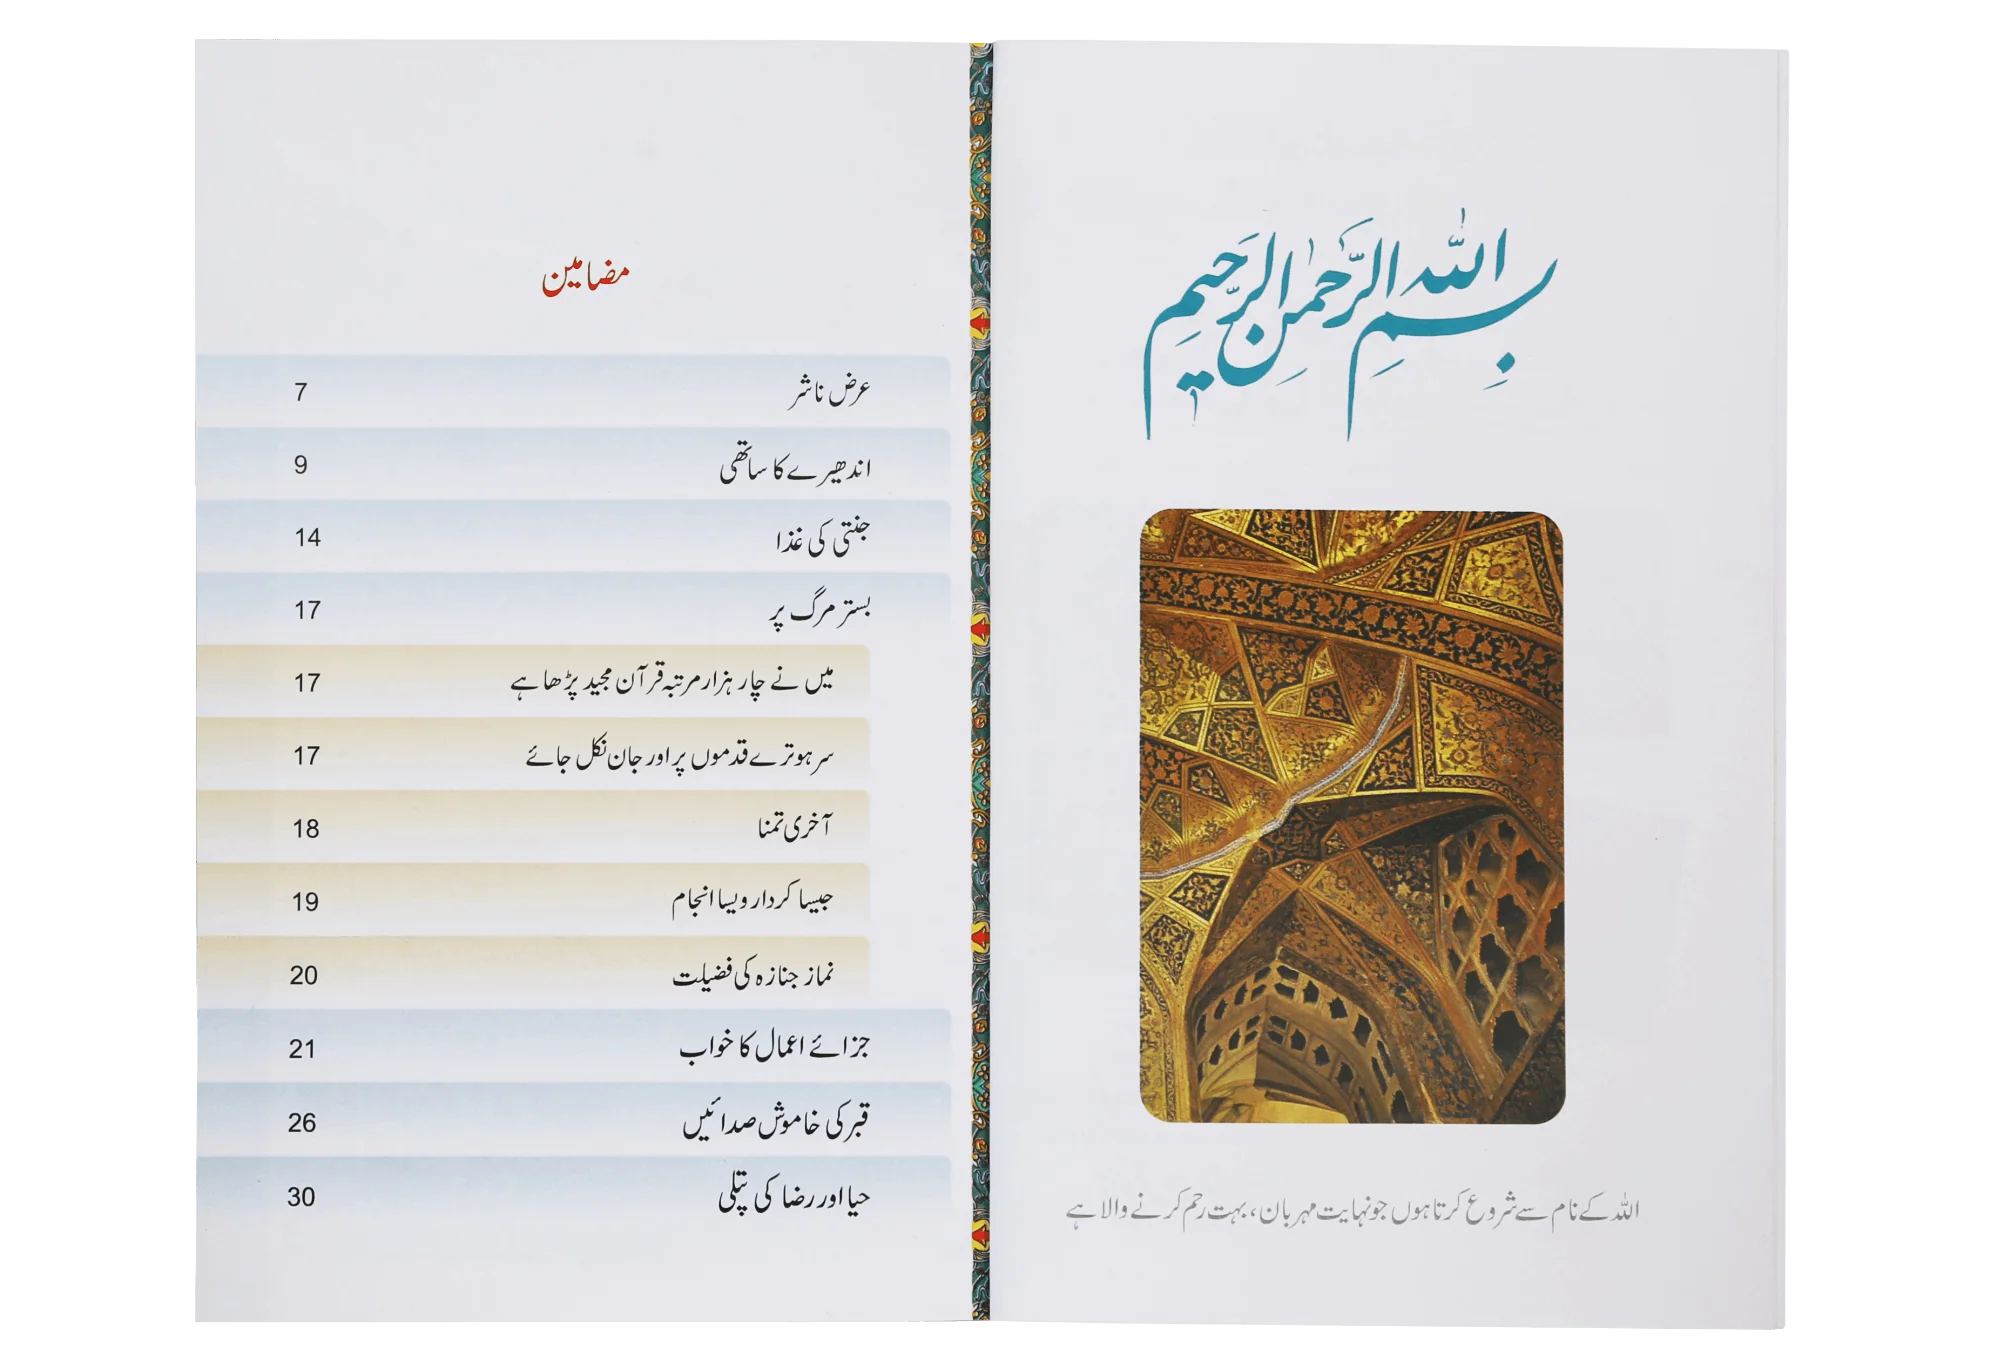 بِسْمِ اللّٰہِ الرَّحْمٰنِ الرَّحِیْمِ
اللہ کے نام سے شروع کرتا ہوں جو نہایت مہربان، بہت رحم کرنے والا ہے
مضامین
عرض ناشر 7
اندھیرے کا ساتھی 9
جنتی کی غذا 14
بستر مرگ پر 17
میں نے چار ہزار مرتبہ قرآن مجید پڑھا ہے 17
سر ہو ترے قدموں پر اور جان نکل جائے 17
آخری تمنا 18
جیسا کردار ویسا انجام 19
نماز جنازہ کی فضیلت 20
جزائے اعمال کا خواب 21
قبر کی خاموش صدائیں 26
حیا اور رضا کی پتلی 30